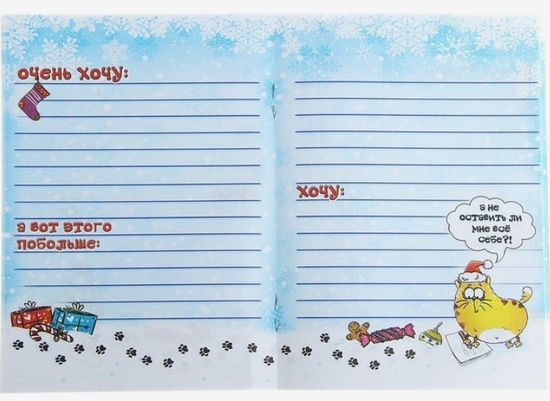 Очень хочу:
а вот этого
побольше:
Хочу:
а не
оставить ли
мне всё
себе?!